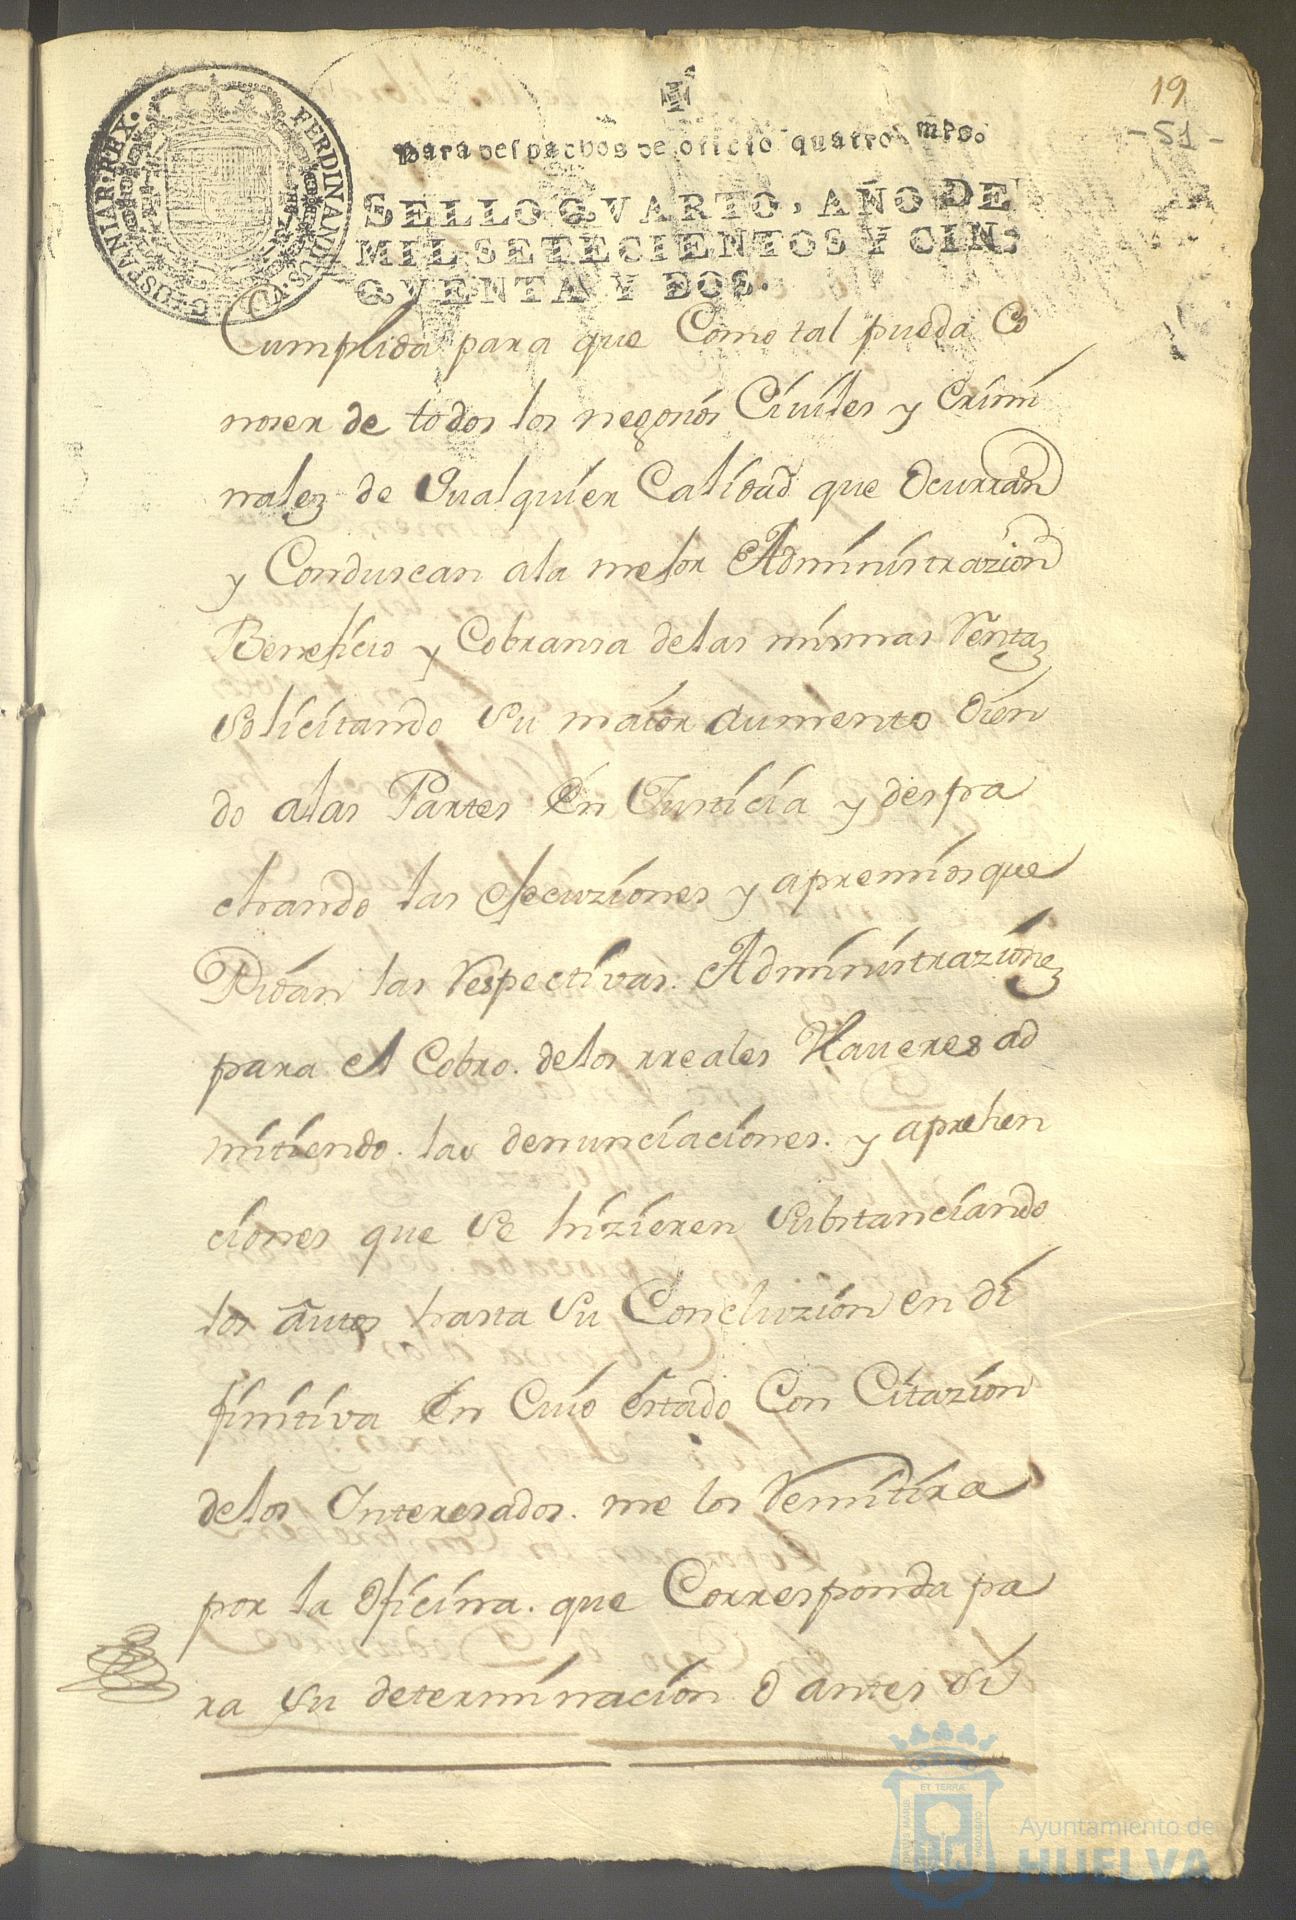 19
- 51 -
FERDINANDUS·VI·D·G·HISPANIAR·REX·
Para despachos de oficio quatro mrs.
SELLO QVARTO, AÑO DE
MIL SETECIENTOS Y CIN-
QVENTA Y DOS.
Cumplida para que Como tal pueda Co
noser de todos los negorios Civiles y Crimi
nales de Qualquier Calidad que Ocurran
y Condurcan ala mejor Administrazion
Beneficio y Cobransa delas mismas Rentas
Solicitando Su maior aumento Oien
do alas Partes En Justicia y despa
chando las ejecuziones y apremios que
Pidan las Respectivas Administraziones
para el Cobro. delos rreales Haueres ad
mitiendo. las denunciaciones. y aprehen
ciones que Se hizieren Substanciando
los autos hasta Su Concluzion en di
finitiva En Cuio estado Con Citazion
delos Interesados. me los Remitira
por la Oficina. que Corresponda pa
ra Su determinacion O antes Si
ET TERRÆ
Ayuntamiento de
HUELVA